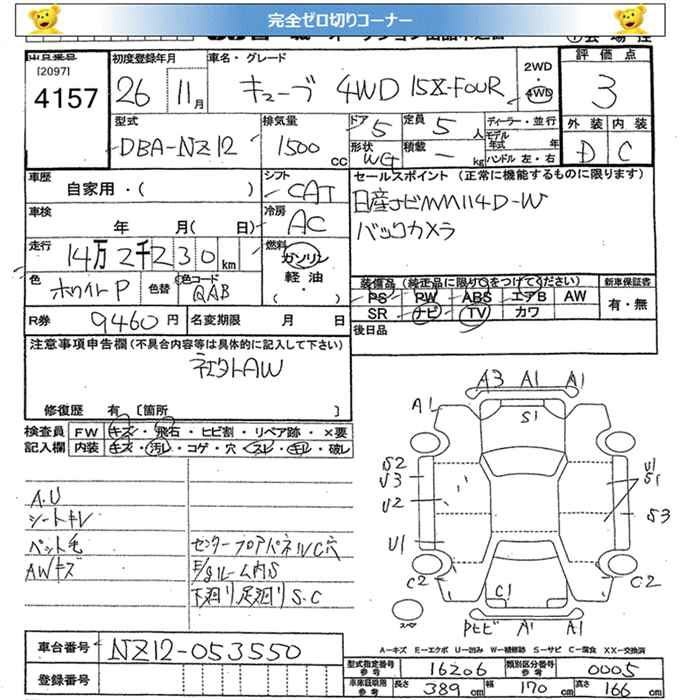 完全ゼロ切りコーナー
出品番号
[2097]
4157
初度登録年月
26 11月
車名・グレード
キューブ 4WD 15X-FOUR
2WD・4WD
評価点
3
外装 内装
D C
型式
DBA-NZ12
排気量
1500cc
ドア 5
定員 5人
形状
積載 ー kg
ディーラー・並行
モデル年式 年
ハンドル 左・右
車歴
自家用・( )
シフト
CAT
セールスポイント (正常に機能するものに限ります)
日産ナビMM114D-W
バックカメラ
車検
年 月(日)
冷房
AC
走行
14万2千230km
燃料
ガソリン
軽油
( )
色
ホワイトP
色替
色コード
QAB
装備品 (純正品に限り○をつけてください)
新車保証書
PS PW ABS エアB AW
有・無
SR ナビ TV カワ
後日品
R券
9460円
名変期限 月 日
注意事項申告欄(不具合内容等は具体的に記入して下さい)
社外AW
修復歴 有 [箇所 ]
検査員
記入欄
FW キズ・飛石・ヒビ割・リペア跡・×要
内装 キズ・汚レ・コゲ・穴・スレ・キレ・破レ
A.U
シートキレ
ペット毛
AWキズ
センターフロアパネルC穴
E/gルーム内S
下廻り足廻りS.C
A3 A1 A1
A1
S1
S2
U3
U2
U1
U1
S1
S3
C2
C1
C2
スペア
PヒビA1 A1
A-キズ E-エクボ U-凹み W-補修跡 S-サビ C-腐食 XX-交換済
車台番号
NZ12-053550
登録番号
型式指定番号
参考
16206
類別区分番号
参考
0005
車庫証明用
参考
長さ 389cm 幅 170cm 高さ 166cm